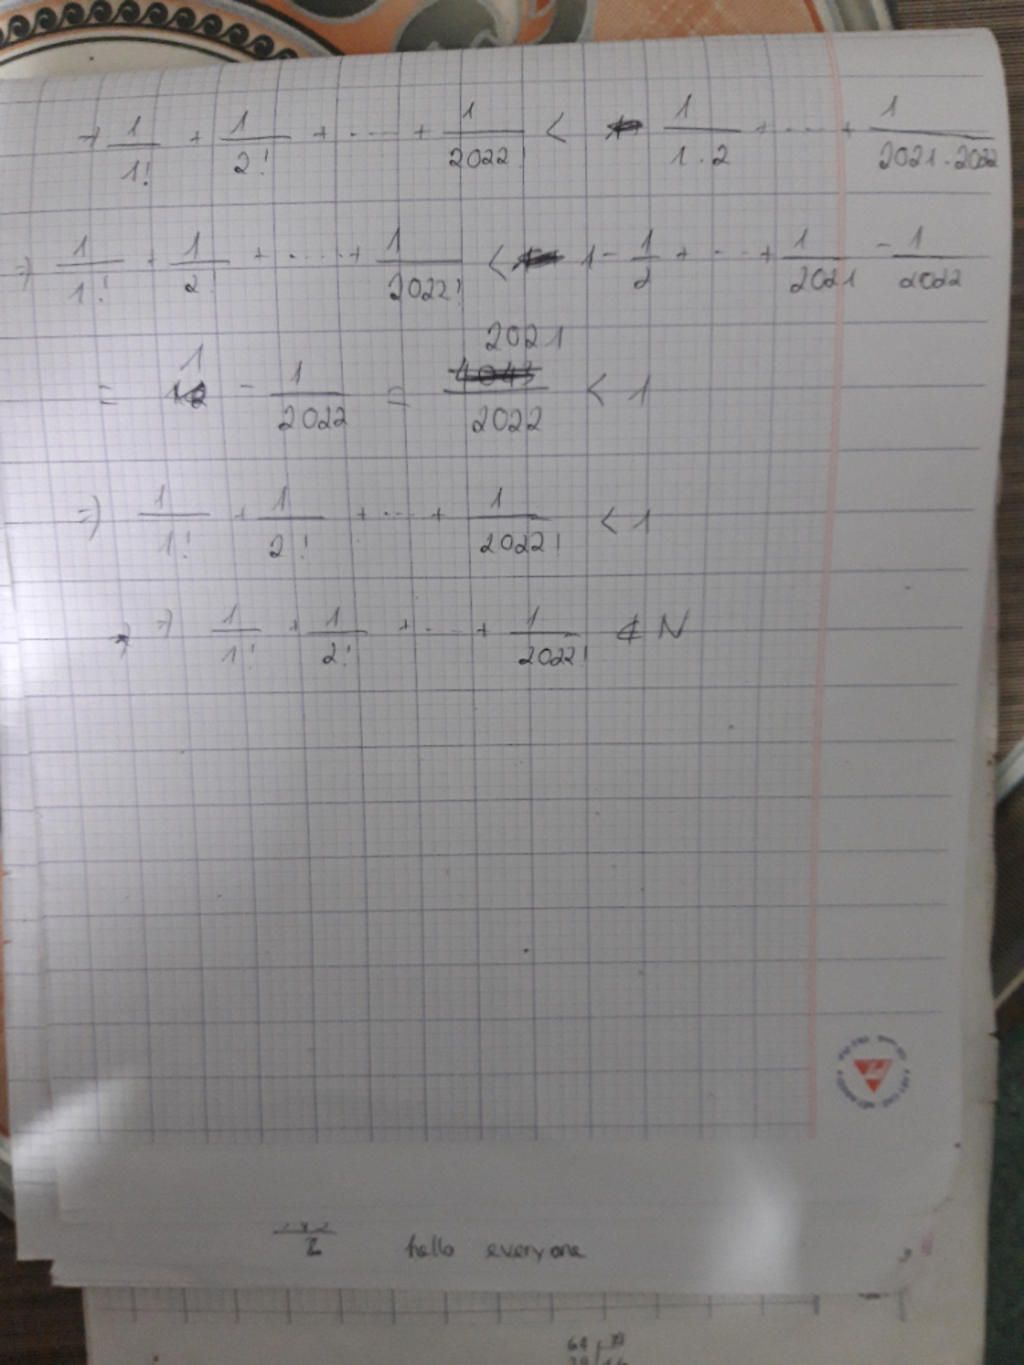 → 1/1! + 1/2! + ... + 1/2022! < 1/1.2 + ... + 1/2021.2022
=) 1/1! + 1/2! + ... + 1/2022! < 1 - 1/2 + ... + 1/2021 - 1/2022
= 1 - 1/2022 = 2021/2022 < 1
=) 1/1! + 1/2! + ... + 1/2022! < 1
=) 1/1! + 1/2! + ... + 1/2022! ∉ N
hello everyone